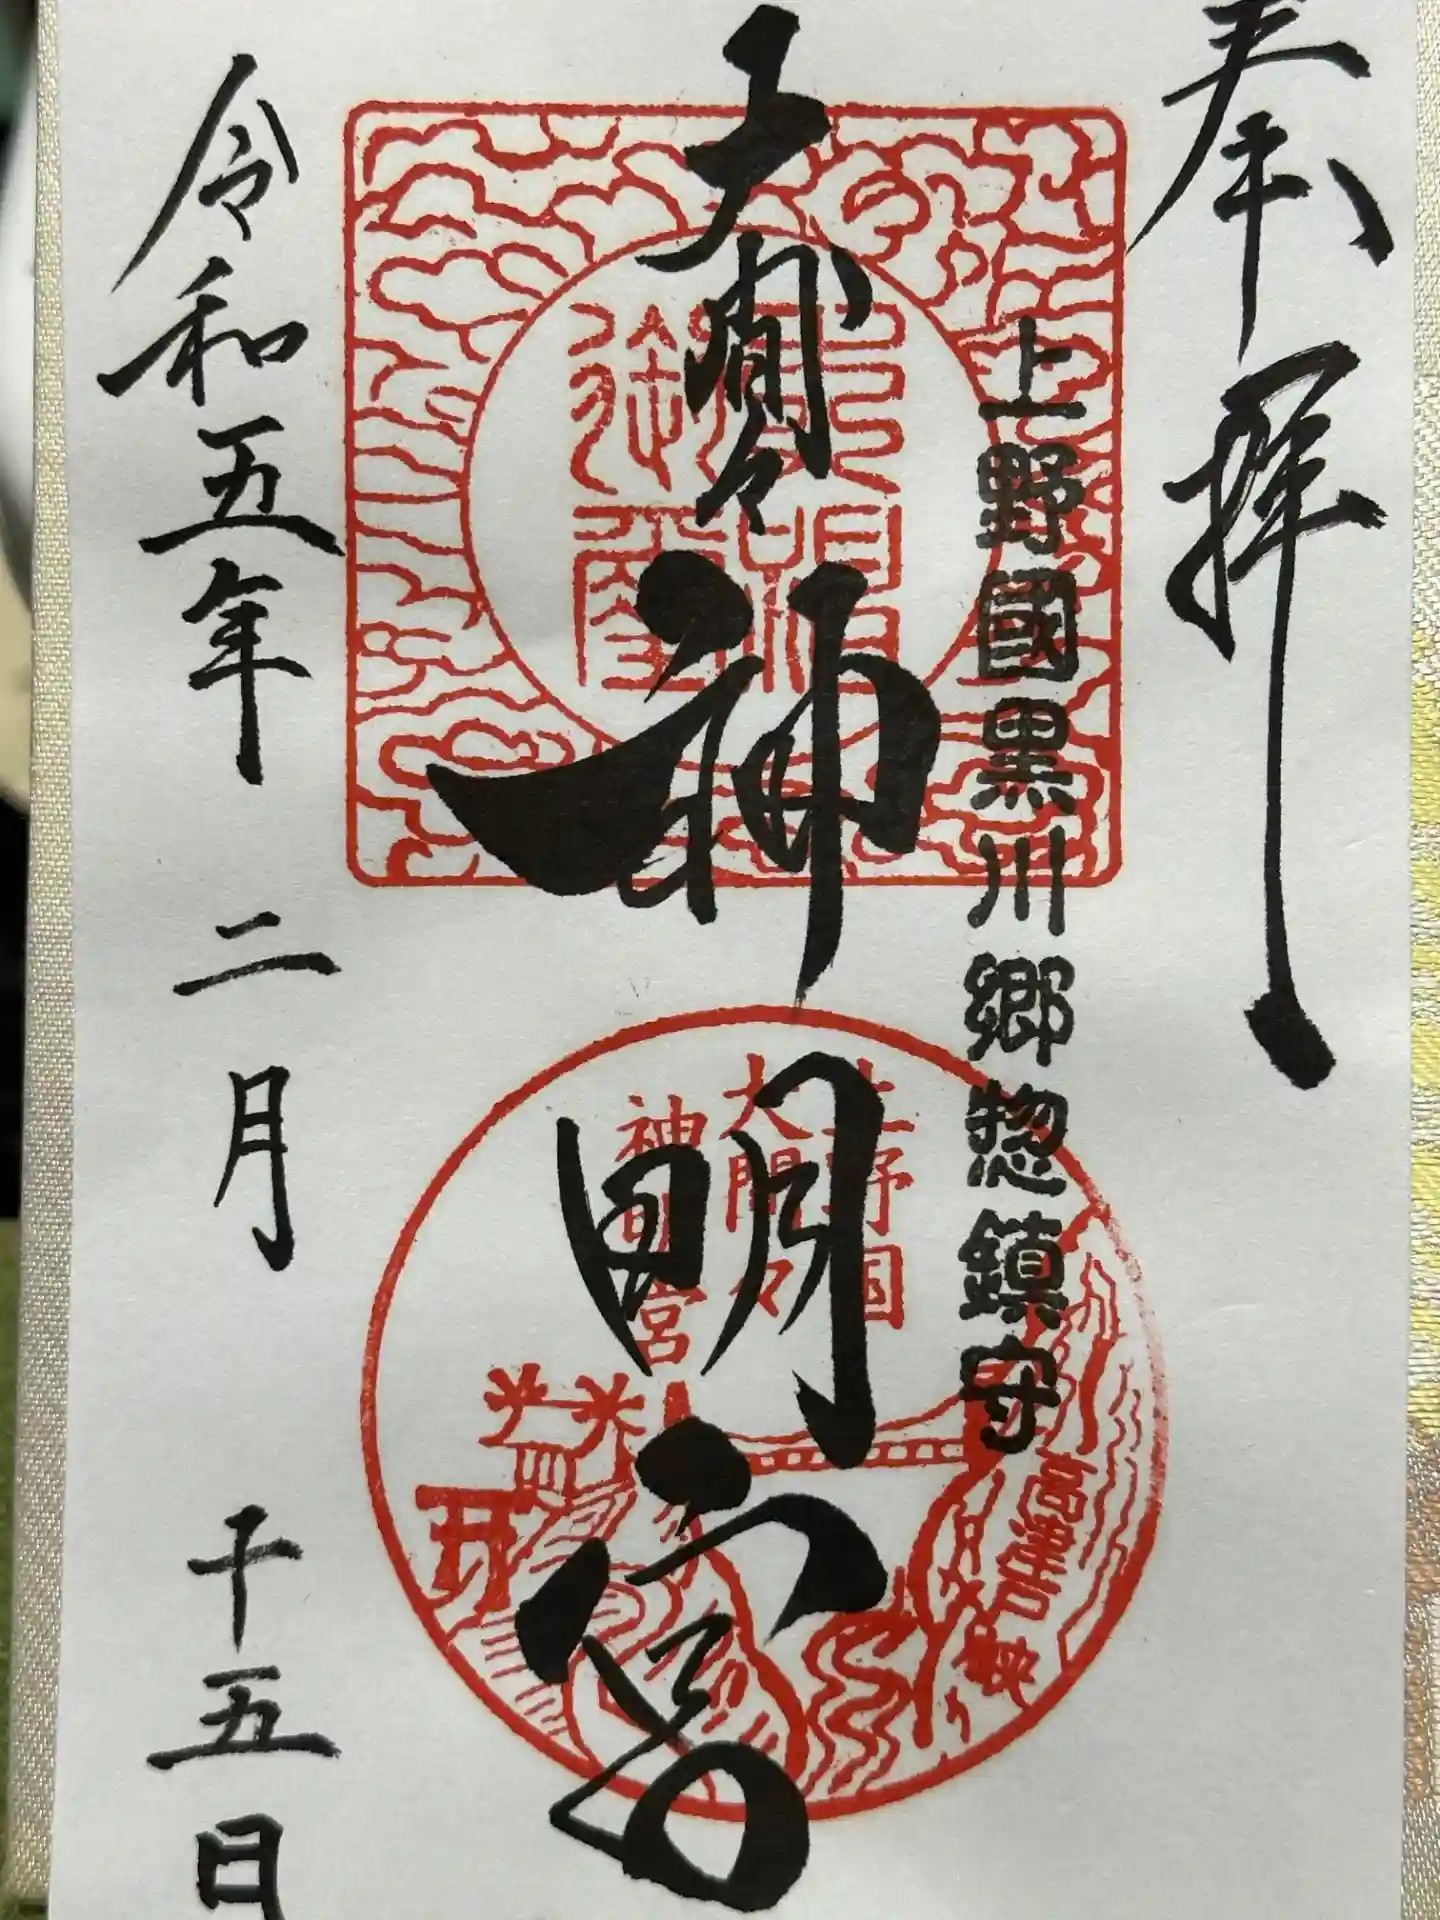 奉拝
上野國黒川郷惣鎮守
大間々神明宮
上野国
大間々
神明宮
高津戸峡
令和五年二月十五日